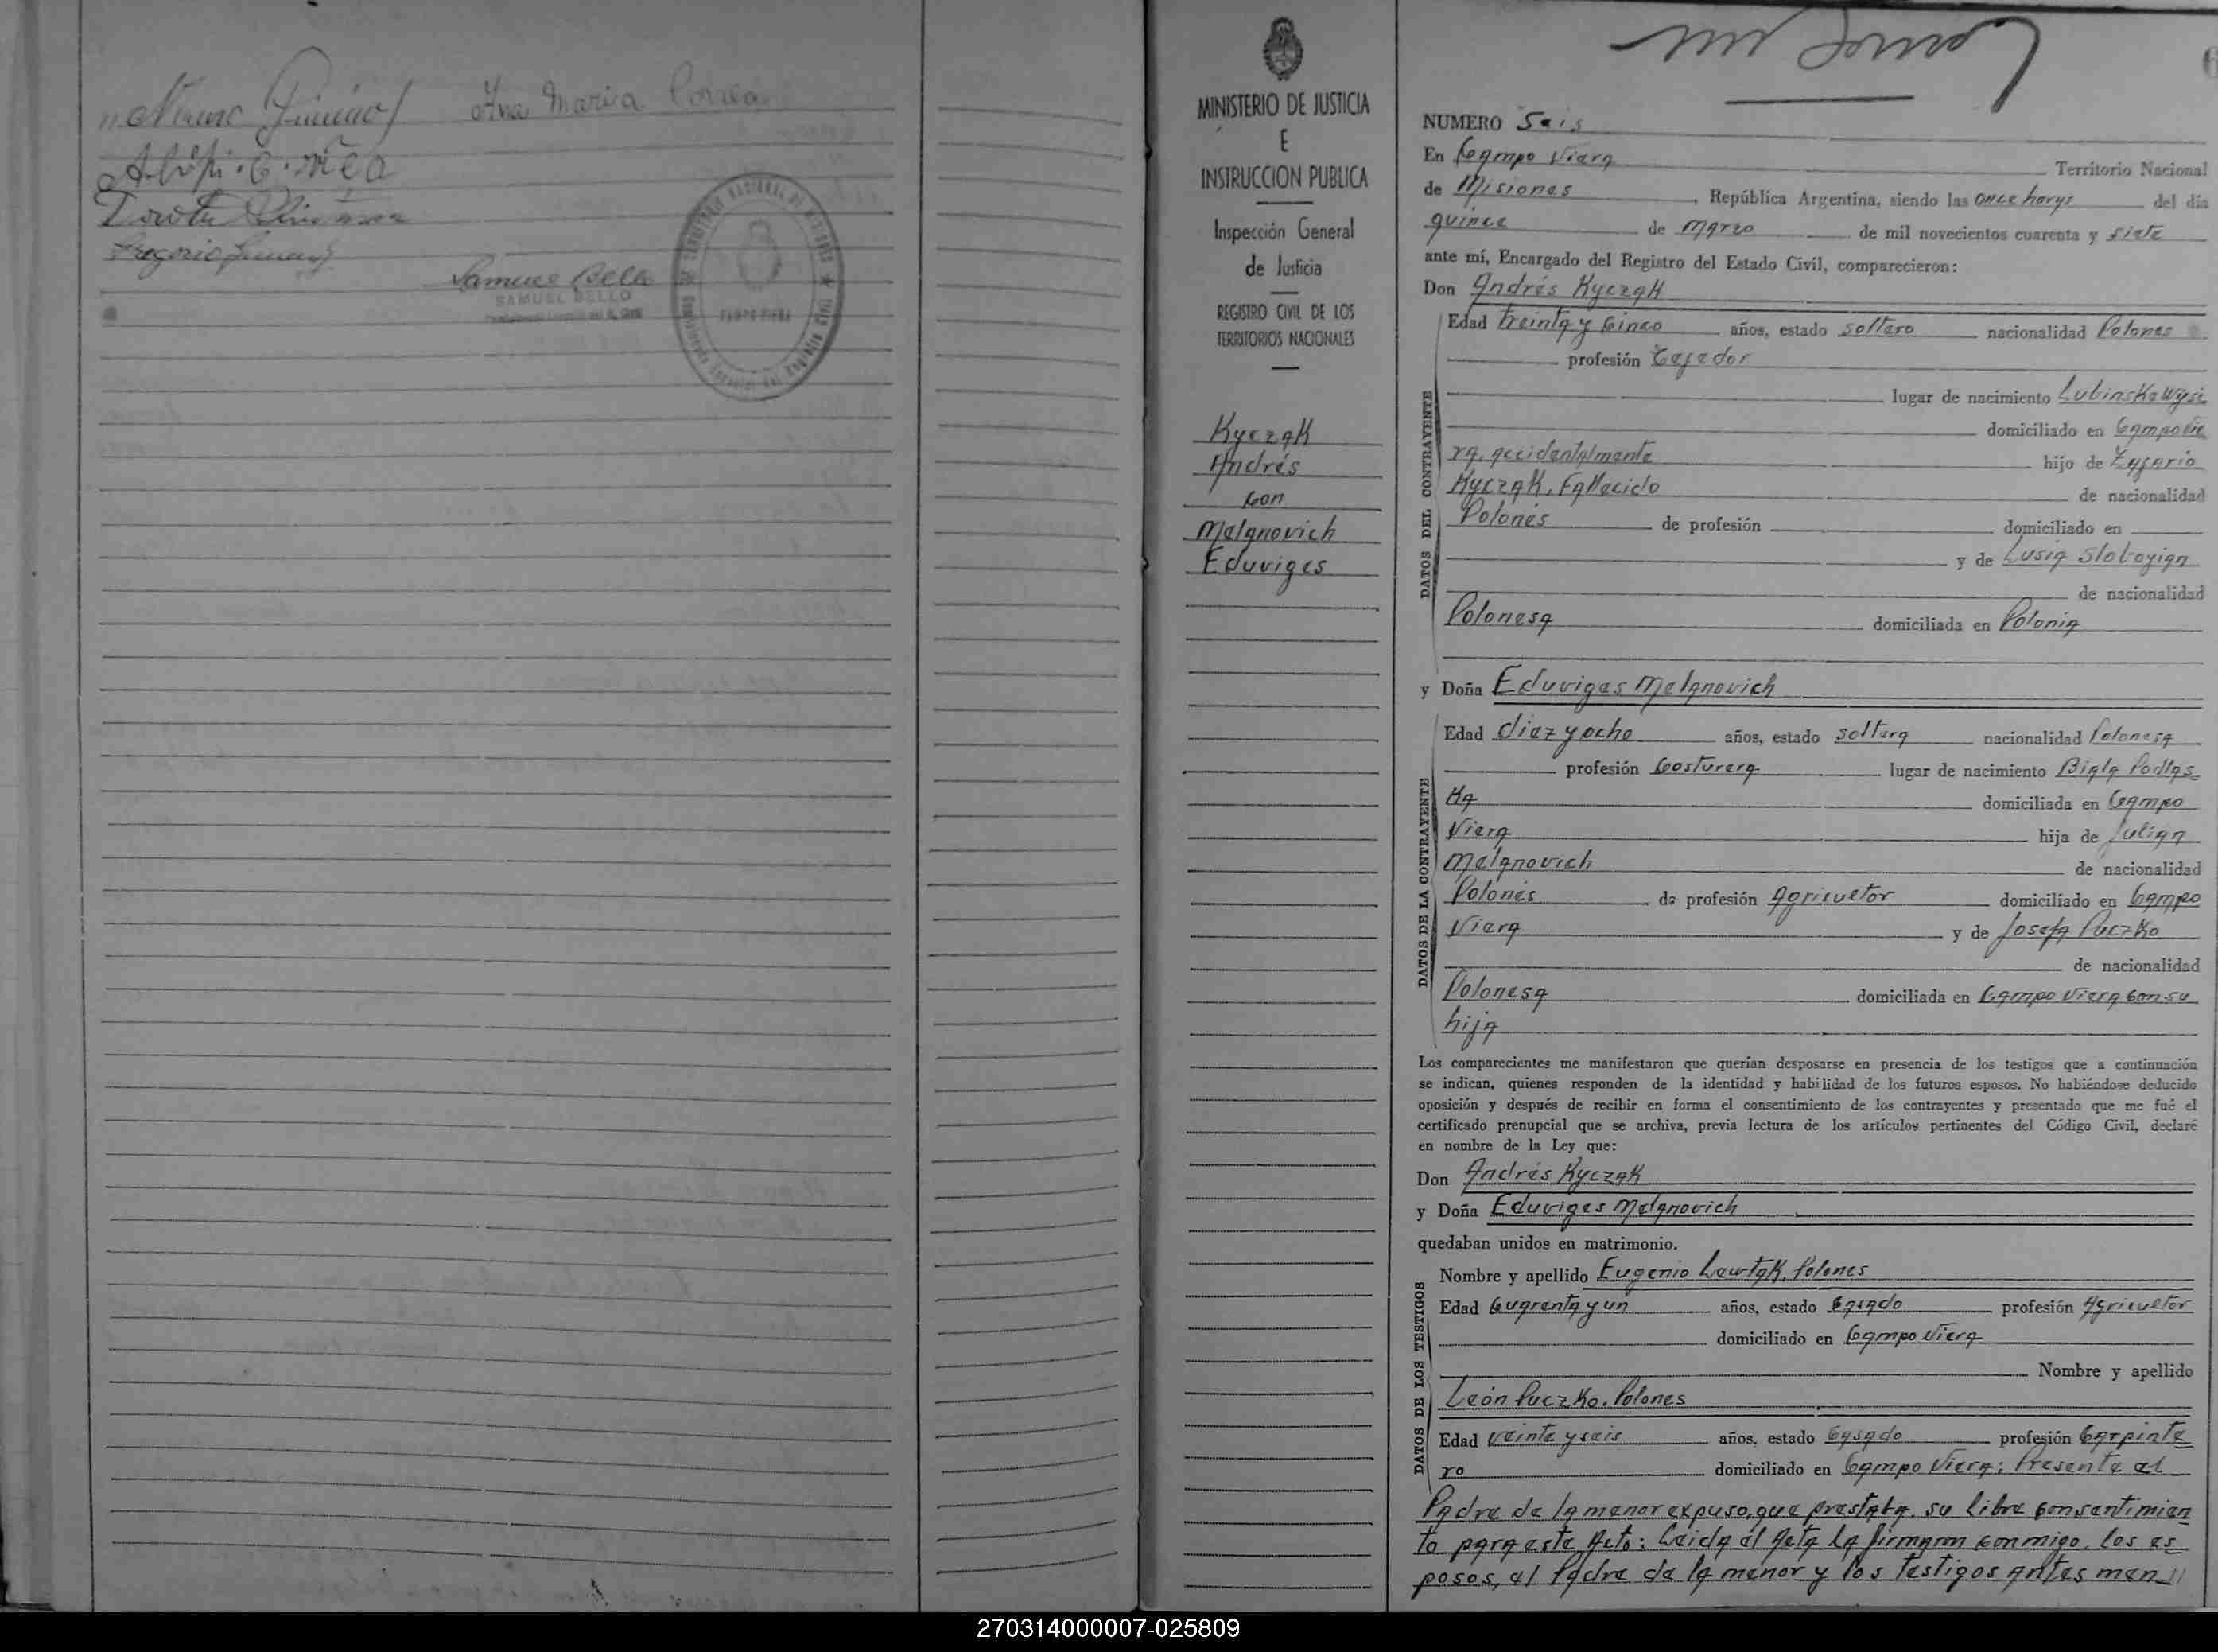 Ana Maria Correa
Samuel Bello
SAMUEL BELLO
MINISTERIO DE JUSTICIA
E
INSTRUCCION PUBLICA
Inspección General
de Justicia
REGISTRO CIVIL DE LOS
TERRITORIOS NACIONALES
Kyczak
Andrés
Con
Melanovich
Eduviges
NUMERO Seis
En Campo Viera Territorio Nacional
de Misiones, República Argentina, siendo las once horas del día
quince de Marzo de mil novecientos cuarenta y siete
ante mí, Encargado del Registro del Estado Civil, comparecieron:
Don Andrés Kyczak
DATOS DEL CONTRAYENTE
Edad treinta y Cinco años, estado soltero nacionalidad Polones
profesión Tejedor
lugar de nacimiento Lubinska Wysi
domiciliado en Campo Vie
ra, accidentalmente hijo de
Kyczak, Fallecido de nacionalidad
Polonés de profesión domiciliado en
y de Lusia Slobogian
de nacionalidad
Polonesa domiciliada en Polonia
y Doña Eduviges Melanovich
DATOS DE LA CONTRAYENTE
Edad diez y ocho años, estado soltera nacionalidad Polonesa
profesión Costurera lugar de nacimiento Biala Podlas
Ka domiciliada en Campo
Viera hija de Julian
Melanovich de nacionalidad
Polonés de profesión Agricultor domiciliado en Campo
Viera y de Josefa Puczko
de nacionalidad
Polonesa domiciliada en Campo Viera Con su
hija
Los comparecientes me manifestaron que querían desposarse en presencia de los testigos que a continuación
se indican, quienes responden de la identidad y habilidad de los futuros esposos. No habiéndose deducido
oposición y después de recibir en forma el consentimiento de los contrayentes y presentado que me fué el
certificado prenupcial que se archiva, previa lectura de los artículos pertinentes del Código Civil, declaré
en nombre de la Ley que:
Don Andrés Kyczak
y Doña Eduviges Melanovich
quedaban unidos en matrimonio.
DATOS DE LOS TESTIGOS
Nombre y apellido Eugenio Lawtak, Polones
Edad Cuarenta y un años, estado Casado profesión Agricultor
domiciliado en Campo Viera
Nombre y apellido
León Puczko. Polones
Edad veinte y seis años, estado Casado profesión Carpinte
ro domiciliado en Campo Viera; Presente el
Padre de la menor expuso, que prestaba su libre Consentimien
to para este Acto: Leida él Acta La firmaron Conmigo, los es
posos, el Padre de la menor y los testigos antes men //
270314000007-025809